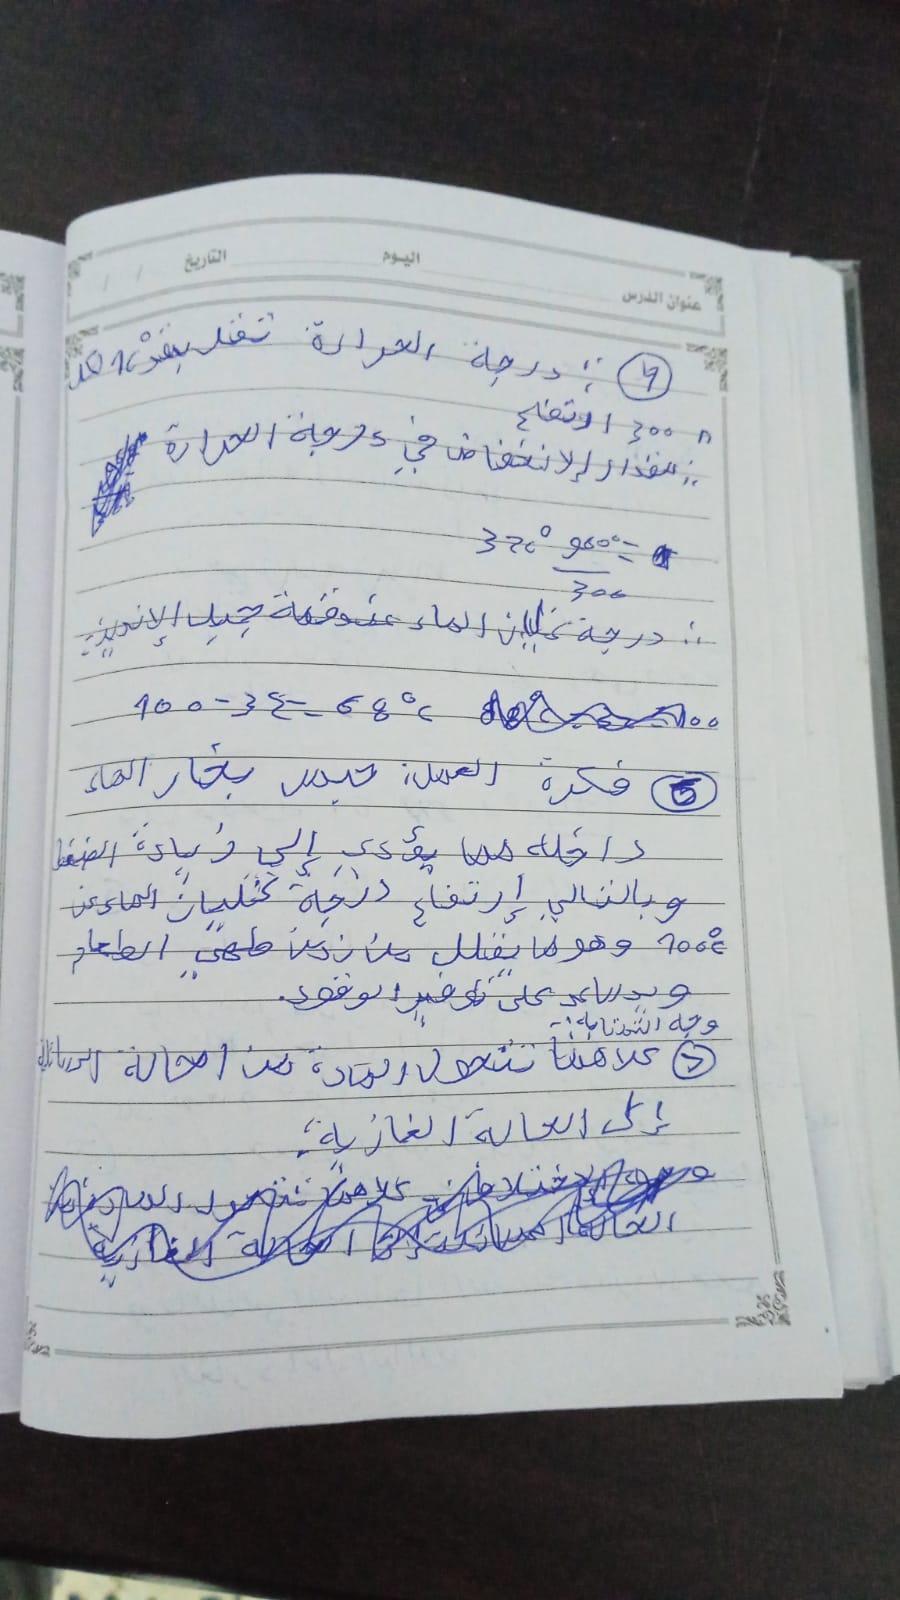 اليوم التاريخ / /
عنوان الدرس
∵ درجة الحرارة تقل بمقدار 1° لكل
300 m ارتفاع
∴ مقدار الانخفاض في درجة الحرارة
= 960° 32°
300
∴ درجة غليان الماء عند قمة جبل الإنديز
100 - 32 = 68°c
5 فكرة العمل: حبس بخار الماء
داخله مما يؤدي إلى زيادة الضغط
وبالتالي إرتفاع درجة غليان الماء عن
100°c وهو ما يقلل من زمن طهي الطعام
ويساعد على توفير الوقود.
وجه التشابه:-
كلاهما تتحول المادة من الحالة السائلة
إلى الحالة الغازية